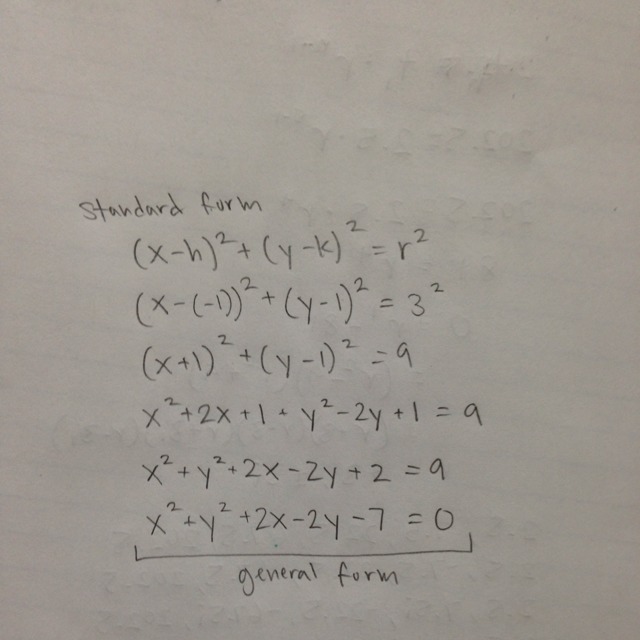 Standard form
(x-h)² + (y-k)² = r²
(x-(-1))² + (y-1)² = 3²
(x+1)² + (y-1)² = 9
x² + 2x + 1 + y² - 2y + 1 = 9
x² + y² + 2x - 2y + 2 = 9
x² + y² + 2x - 2y - 7 = 0
general form